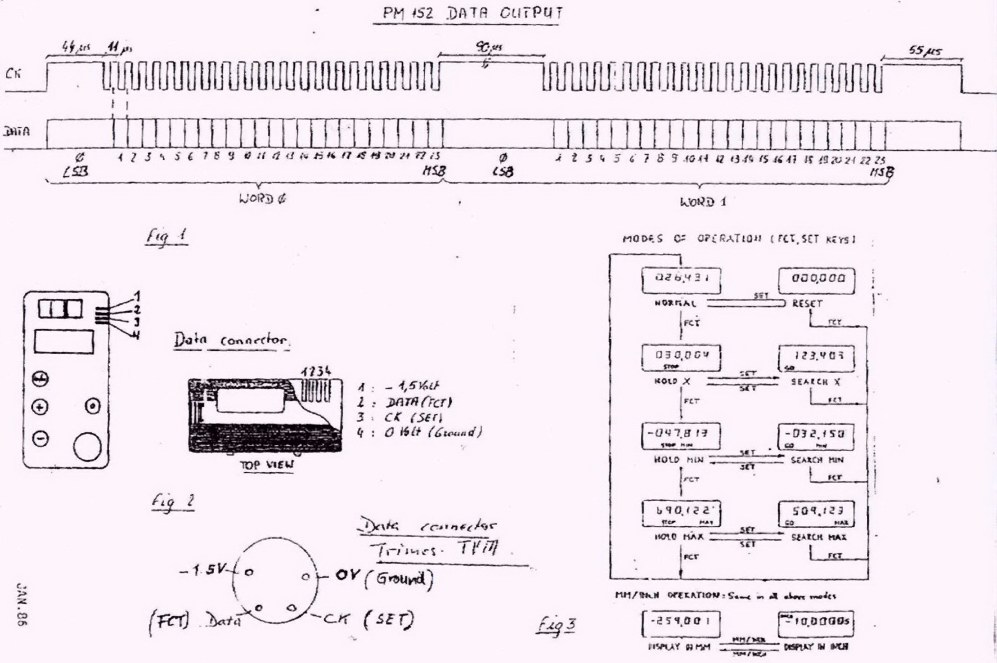 PM 152 DATA OUTPUT
44 µs 11 µs 90 µs 55 µs
CK
DATA
Ø 1 2 3 4 5 6 7 8 9 10 11 12 13 14 15 16 17 18 19 20 21 22 23 Ø 1 2 3 4 5 6 7 8 9 10 11 12 13 14 15 16 17 18 19 20 21 22 23
LSB MSB LSB MSB
WORD Ø WORD 1
Fig 1
1
2
3
4
Data connector.
1 2 3 4
1 : - 1,5 Volt
2 : DATA (FCT)
3 : CK (SET)
4 : 0 Volt (Ground)
TOP VIEW
Fig 2
Data connector
Trimos.
- 1.5V
0V (Ground)
(FCT) Data
CK (SET)
JAN. 86
MODES OF OPERATION (FCT, SET KEYS)
026,431 000,000
NORMAL SET RESET
FCT FCT
030,004 123,403
STOP GO
HOLD X SET SEARCH X
SET
FCT FCT
-047,813 -032,150
STOP MIN GO MIN
HOLD MIN SET SEARCH MIN
SET
FCT FCT
690,122 509,123
STOP MAX GO MAX
HOLD MAX SET SEARCH MAX
SET
FCT FCT
MM/INCH OPERATION: Same in all above modes
-254,001 -10,00005
DISPLAY IN MM MM/INCH DISPLAY IN INCH
MM/INCH
Fig 3